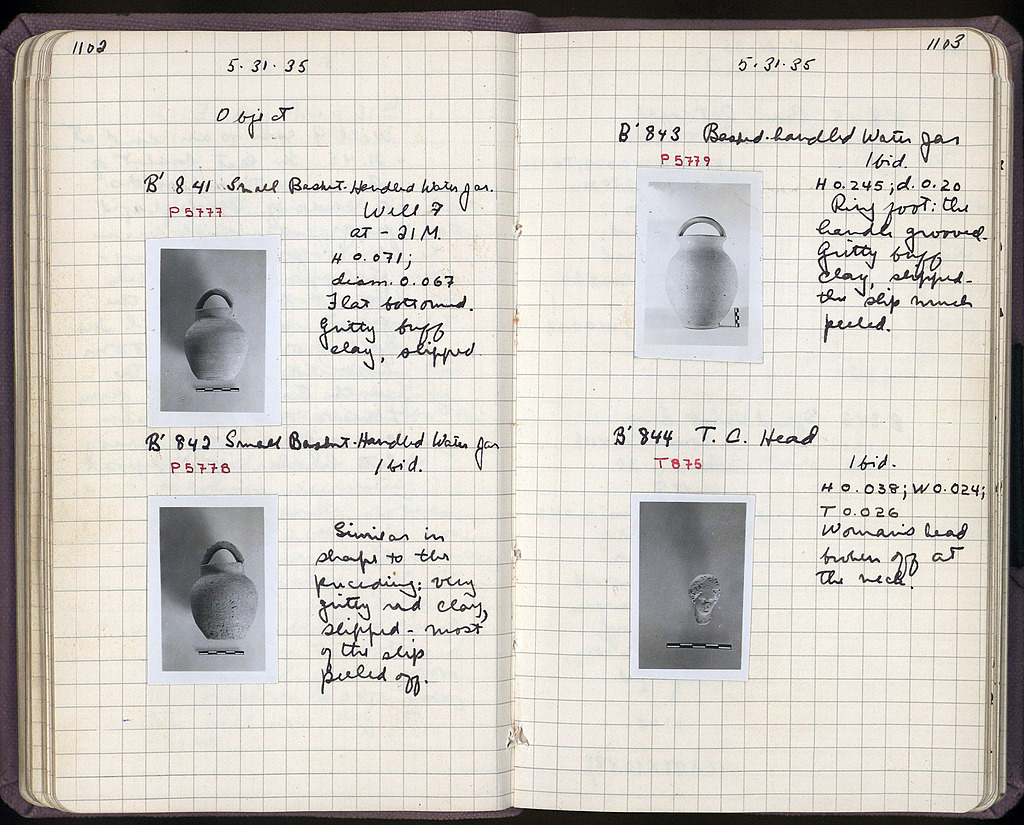 1102
5·31·35
Object
B' 841 Small Basket-Handled Water Jar.
P5777
Well 7
at - 21 M.
H 0.071;
diam. 0.067
Flat bottomed.
Gritty buff
clay, slipped.
B' 842 Small Basket-Handled Water Jar
P5778
Ibid.
Similar in
shape to the
preceding; very
gritty red clay,
slipped - most
of the slip
peeled off.
1103
5·31·35
B' 843 Basket-handled Water Jar
P5779
Ibid.
H 0.245; d. 0.20
Ring foot: the
handle grooved.
Gritty buff
clay, slipped -
the slip much
peeled.
B' 844 T. C. Head
T875
Ibid.
H 0.038; W 0.024;
T 0.026
Woman's head
broken off at
the neck.